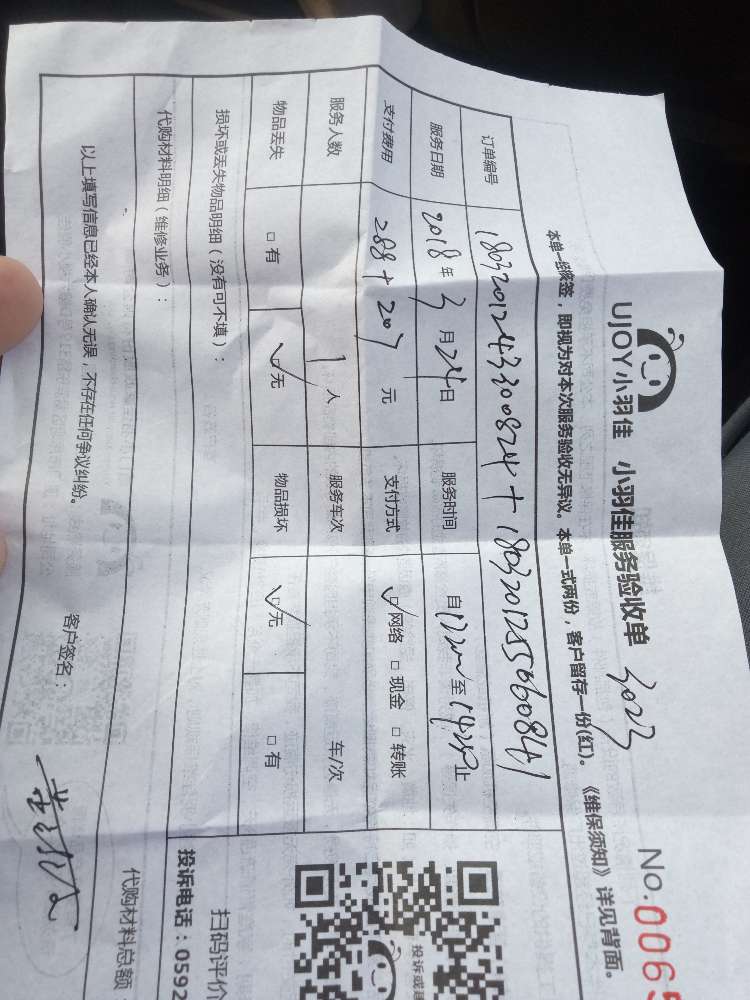 UJOY小羽佳 小羽佳服务验收单 3023 No.0065
本单一经核签，即视为对本次服务验收无异议。本单一式两份，客户留存一份(红)。《维保须知》详见背面。
订单编号
服务日期 2018年3月24日 服务时间
支付费用 288+207元 支付方式 网络 现金 转账
服务人数 1人 服务车次 车/次
物品丢失 有 无 物品损坏 无 有
损坏或丢失物品明细（没有可不填）：
代购材料明细（维修业务）：
代购材料总额
以上填写信息已经本人确认无误，不存在任何争议纠纷。
客户签名：
扫码评价
投诉电话：0592